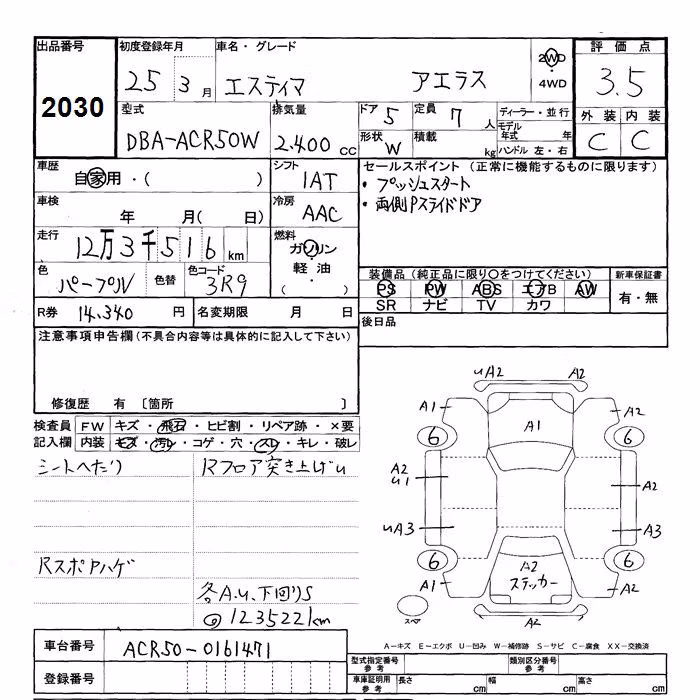 出品番号 初度登録年月 車名・グレード 評価点
2030 25 3月 エスティマ アエラス 2WD 4WD 3.5
型式 排気量 ドア 5 定員 7人 ディーラー・並行 外装 内装
DBA-ACR50W 2.400cc 形状 W 積載 kg モデル年式 年 ハンドル 左・右 C C
車歴 自家用・( ) シフト 1AT セールスポイント (正常に機能するものに限ります)
車検 年 月( 日) 冷房 AAC ・プッシュスタート
・両側Pスライドドア
走行 12万3千516km 燃料 ガソリン 軽油 ・( )
色 パープル 色替 色コード 3R9 装備品(純正品に限り○をつけてください) 新車保証書
PS PW ABS エアB AW 有・無
SR ナビ TV カワ
R券 14,340円 名変期限 月 日 後日品
注意事項申告欄(不具合内容等は具体的に記入して下さい)
修復歴 有 〔箇所 〕
検査員記入欄 FW キズ・飛石・ヒビ割・リペア跡・×要
内装 キズ・汚レ・コゲ・穴・スレ・キレ・破レ
シートへたり Rフロア突き上げu
Rスポアハゲ
各A.u、下回りS
◎123522km
uA2 A2
A1 A1 A2
6 6
A2 u1 A2
uA3 A3
6 A2 ステッカー 6
A1 A2
スペア A2
A-キズ E-エクボ U-凹み W-補修跡 S-サビ C-腐食 XX-交換済
車台番号 ACR50-0161471
型式指定番号 参考 類別区分番号 参考
登録番号 車庫証明用参考 長さ cm 幅 cm 高さ cm